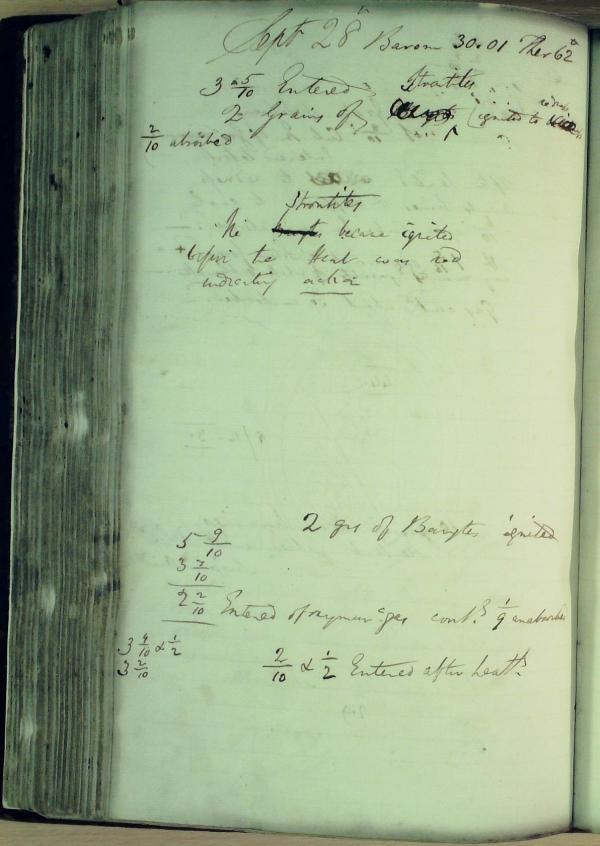 Sept 28th Barom 30.01 Ther 62
3 5/10 Entered Strontites
2 Grains of (ignited to redness
2/10 absorbed
Strontites
The became ignited
before the Heat was red
indicating action
2 grs of Barytes ignited
5 9/10
3 7/10
2 2/10 Entered of oxymur c gas cont.g 1/9 unabsorbable
3 4/10 & 1/2
3 2/10
2/10 & 1/2 Entered after heat.g